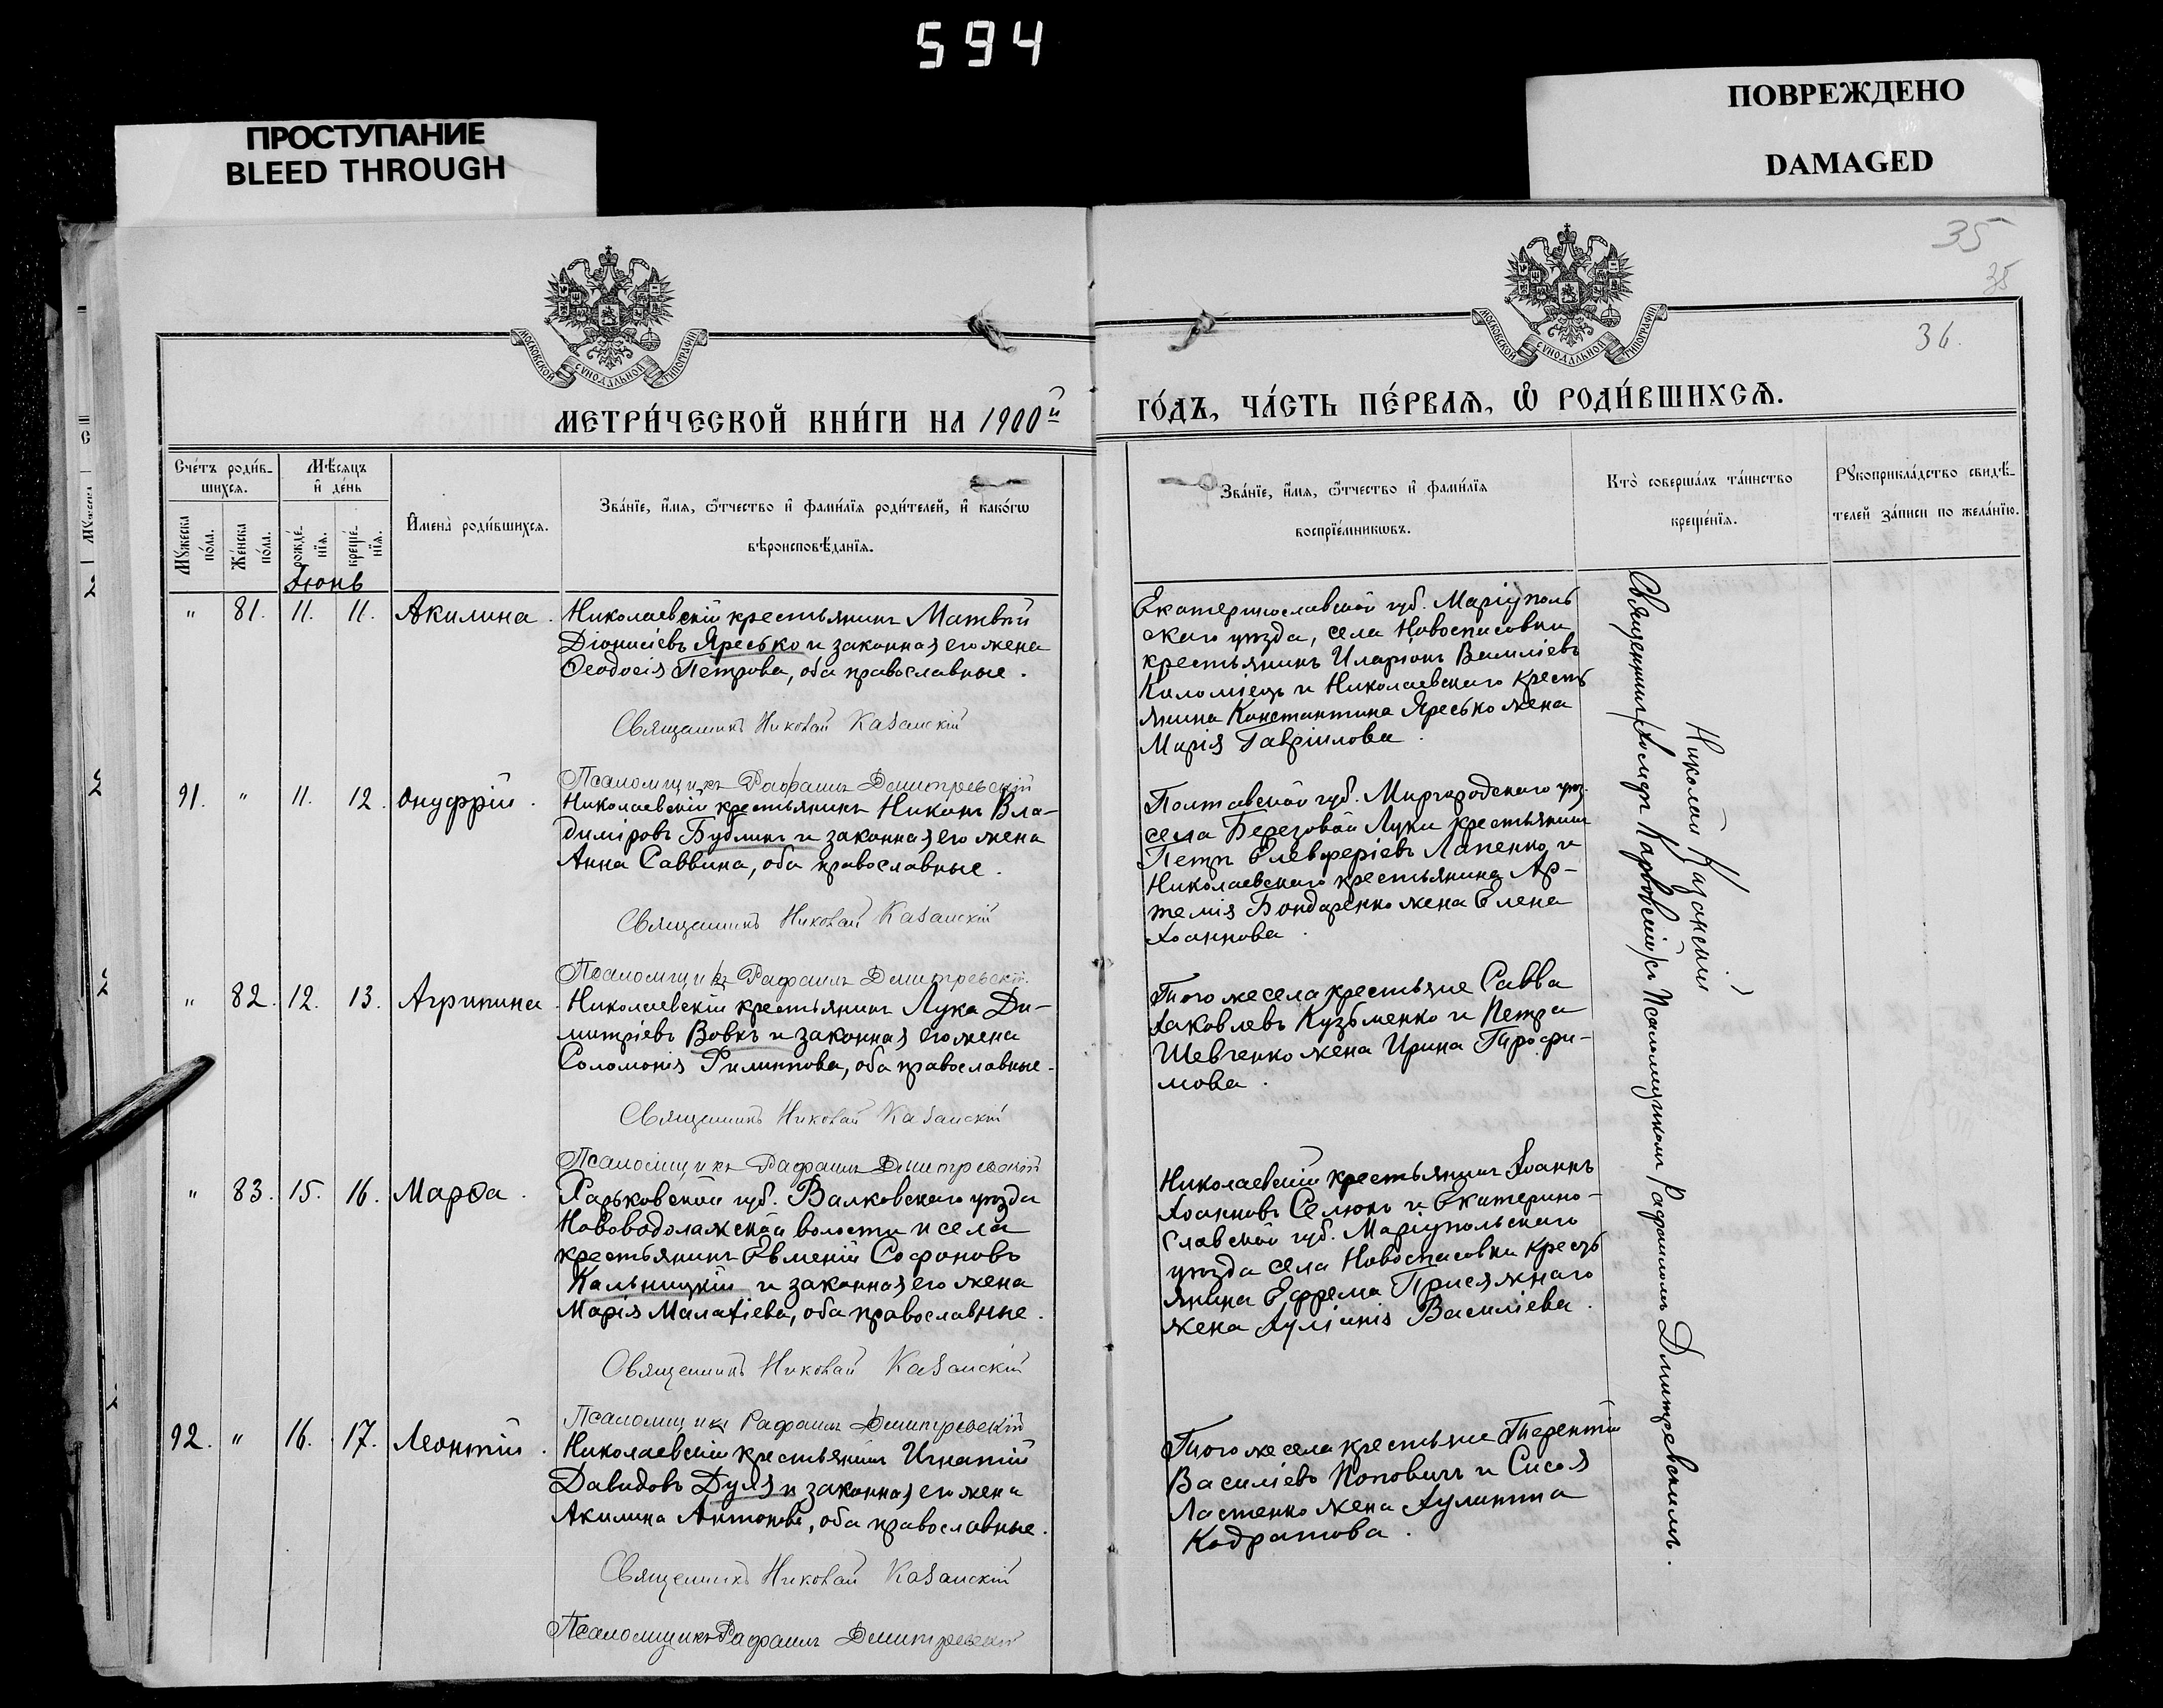 594
ПРОСТУПАНИЕ
BLEED THROUGH
ПОВРЕЖДЕНО
DAMAGED
35
35
36.
МОСКОВСКОЙ СѴНОДАЛЬНОЙ ТИПОГРАФІИ
МОСКОВСКОЙ СѴНОДАЛЬНОЙ ТИПОГРАФІИ
МЕТРИ́ЧЕСКОЙ КНИ́ГИ НА 1900й
ГО́ДЪ, ЧА́СТЬ ПЕ́РВАѦ, Ѽ РОДИ́ВШИХСѦ.
Счетъ роди́в-
шихсѧ.
Мѣ́сѧцъ
и҆ де́нь
Мꙋ́жеска
по́ла.
Же́нска
по́ла.
рожде́-
нїѧ.
креще́-
нїѧ.
И҆мена̀ роди́вшихсѧ.
Зва́нїе, и҆́мѧ, ѻ҆́тчество и҆ фами́лїѧ роди́телей, и҆ како́гѡ
вѣроисповѣ́данїѧ.
Зва́нїе, и҆́мѧ, ѻ҆́тчество и҆ фами́лїѧ
воспрїе́мникѡвъ.
Кто̀ соверша́лъ та́инство
креще́нїѧ.
Рꙋкоприкла́дство свидѣ́-
телей за́писи по жела́нїю.
Іюнь
" 81. 11. 11. Акилина. Николаевскій крестьянинъ Матвѣй
Діонисіевъ Яресько и законная его жена
Ѳеодосія Петрова, оба православные.
Священникъ Николай Казанскій
Псаломщикъ Рафаилъ Димитревскій
Екатеринославской губ. Маріуполь
скаго уѣзда, села Новоспасовки
крестьянинъ Иларіонъ Василіевъ
Коломіецъ и Николаевскаго кресть
янина Константина Яресько жена
Марія Гавріилова.
91. " 11. 12. Онуфрій. Николаевскій крестьянинъ Никонъ Вла-
диміровъ Бубликъ и законная его жена
Анна Саввина, оба православные.
Священникъ Николай Казанскій
Псаломщикъ Рафаилъ Димитревскій
Полтавской губ. Миргородскаго уѣз.
села Березовой Луки крестьянинъ
Петръ Елевферіевъ Лапенко и
Николаевскаго крестьянина Ар-
темія Бондаренко жена Елена
Іоаннова.
" 82. 12. 13. Агрипина. Николаевскій крестьянинъ Лука Ди-
митріевъ Вовкъ и законная его жена
Соломонія Филиппова, оба православные.
Священникъ Николай Казанскій
Псаломщикъ Рафаилъ Димитревскій
Того же села крестьяне Савва
Іаковлевъ Кузьменко и Петра
Шевченко жена Ирина Трофи-
мова.
" 83. 15. 16. Марѳа. Харьковской губ. Валковскаго уѣзда
Нововодолажской волости и села
крестьянинъ Евменій Софоновъ
Кальницкій и законная его жена
Марія Малахіева, оба православные.
Священникъ Николай Казанскій
Псаломщикъ Рафаилъ Димитревскій
Николаевскій крестьянинъ Іоаннъ
Іоанновъ Селюкъ и Екатерино-
славской губ. Маріупольскаго
уѣзда села Новоспасовки кресть
янина Ефрема Присяжнаго
жена Іуліанія Василіева.
92. " 16. 17. Леонтій. Николаевскій крестьянинъ Игнатій
Давидовъ Дуля и законная его жена
Акилина Антонова, оба православные.
Священникъ Николай Казанскій
Псаломщикъ Рафаилъ Димитревскій
Того же села крестьяне Терентій
Василіевъ Поповичъ и Сисоя
Ластенко жена Іулитта
Кодратова.
Николай Казанскій
Псаломщикомъ Рафаиломъ Димитревскимъ.